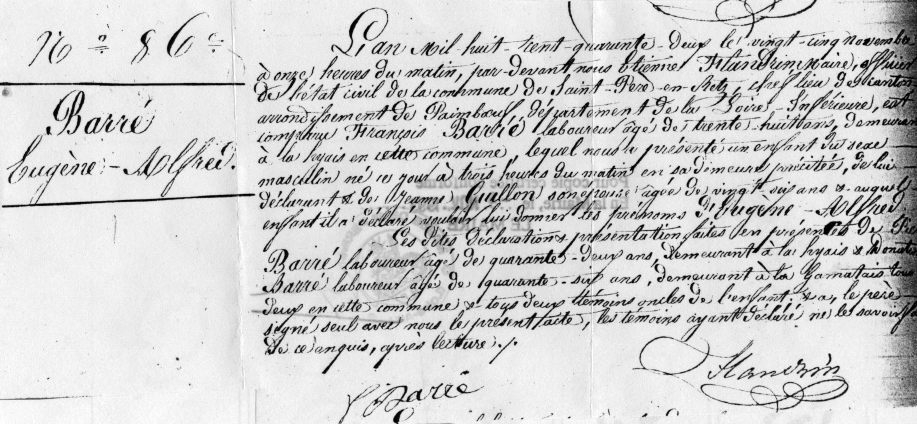 N° 86
Barré
Eugène-Alfred.
L'an Mil huit-cent-quarante-deux le vingt-cinq novembre
à onze heures du matin, par-devant nous Etienne Flandrin Maire, officier
de l'état civil de la commune de Saint-Père-en-Retz, chef lieu de canton
arrondissement de Paimbœuf, département de la Loire-Inférieure, est
comparu François Barré laboureur âgé de trente-huit ans, demeurant
à la hyais en cette commune, lequel nous a présenté un enfant du sexe
masculin né ce jour à trois heures du matin en sa demeure précitée, de lui
déclarant & de Jeanne Guillon son épouse âgée de vingt-six ans & auquel
enfant il a déclaré vouloir lui donner les prénoms d'Eugène-Alfred
Les dites déclarations & présentation faites en présence de
Barré laboureur âgé de quarante-deux ans, demeurant à la hyais & Donatien
Barré laboureur âgé de quarante-six ans, demeurant à la Gamatais tous
deux en cette commune & tous deux témoins oncles de l'enfant, & a, le père
signé seul avec nous le présent acte, les témoins ayant déclaré ne le savoir
de ce enquis, après lecture ./.
Barré
Flandrin